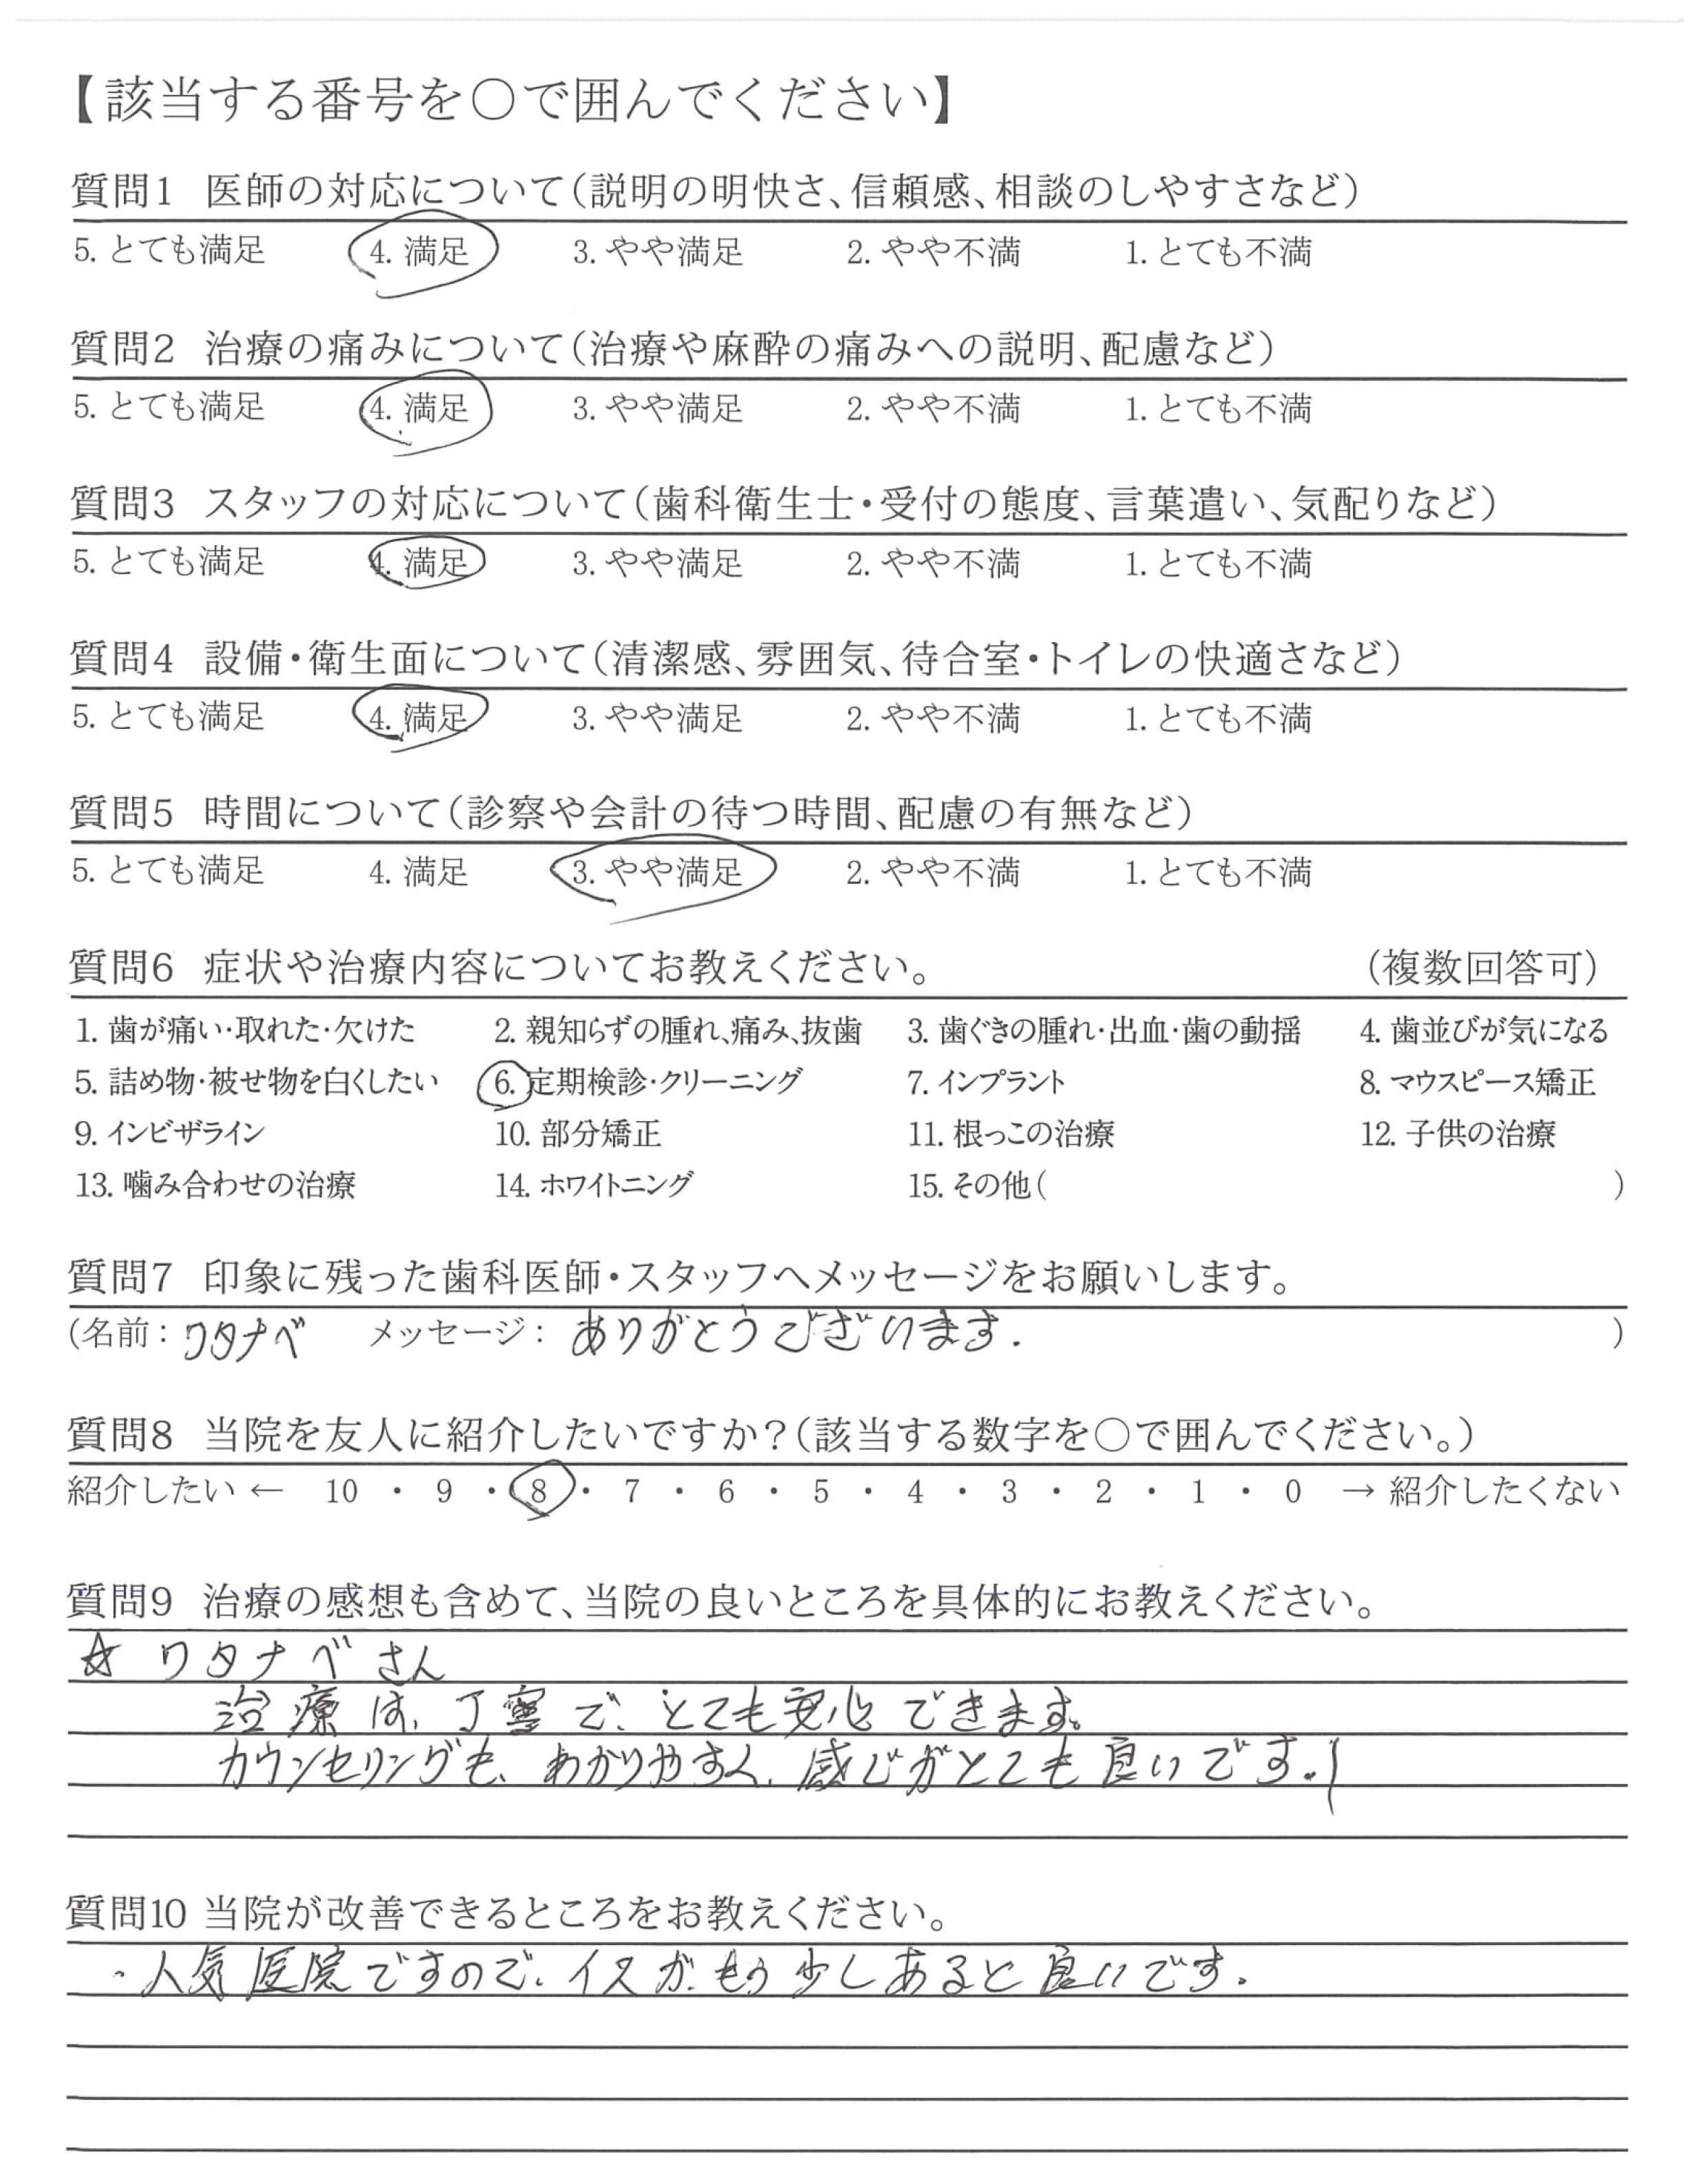 【該当する番号を○で囲んでください】
質問1 医師の対応について(説明の明快さ、信頼感、相談のしやすさなど)
5. とても満足 4. 満足 3. やや満足 2. やや不満 1. とても不満
質問2 治療の痛みについて(治療や麻酔の痛みへの説明、配慮など)
5. とても満足 4. 満足 3. やや満足 2. やや不満 1. とても不満
質問3 スタッフの対応について(歯科衛生士・受付の態度、言葉遣い、気配りなど)
5. とても満足 4. 満足 3. やや満足 2. やや不満 1. とても不満
質問4 設備・衛生面について(清潔感、雰囲気、待合室・トイレの快適さなど)
5. とても満足 4. 満足 3. やや満足 2. やや不満 1. とても不満
質問5 時間について(診察や会計の待つ時間、配慮の有無など)
5. とても満足 4. 満足 3. やや満足 2. やや不満 1. とても不満
質問6 症状や治療内容についてお教えください。 (複数回答可)
1. 歯が痛い・取れた・欠けた 2. 親知らずの腫れ、痛み、抜歯 3. 歯ぐきの腫れ・出血・歯の動揺 4. 歯並びが気になる
5. 詰め物・被せ物を白くしたい 6. 定期検診・クリーニング 7. インプラント 8. マウスピース矯正
9. インビザライン 10. 部分矯正 11. 根っこの治療 12. 子供の治療
13. 噛み合わせの治療 14. ホワイトニング 15. その他( )
質問7 印象に残った歯科医師・スタッフへメッセージをお願いします。
(名前: ワタナベ メッセージ: ありがとうございます. )
質問8 当院を友人に紹介したいですか?(該当する数字を○で囲んでください。)
紹介したい ← 10 ・ 9 ・ 8 ・ 7 ・ 6 ・ 5 ・ 4 ・ 3 ・ 2 ・ 1 ・ 0 → 紹介したくない
質問9 治療の感想も含めて、当院の良いところを具体的にお教えください。
☆ ワタナベさん
治療は、丁寧で、とても安心できます。
カウンセリングも、わかりやすく、感じがとても良いです.!
質問10 当院が改善できるところをお教えください。
・人気医院ですので、イスが、もう少しあると良いです.